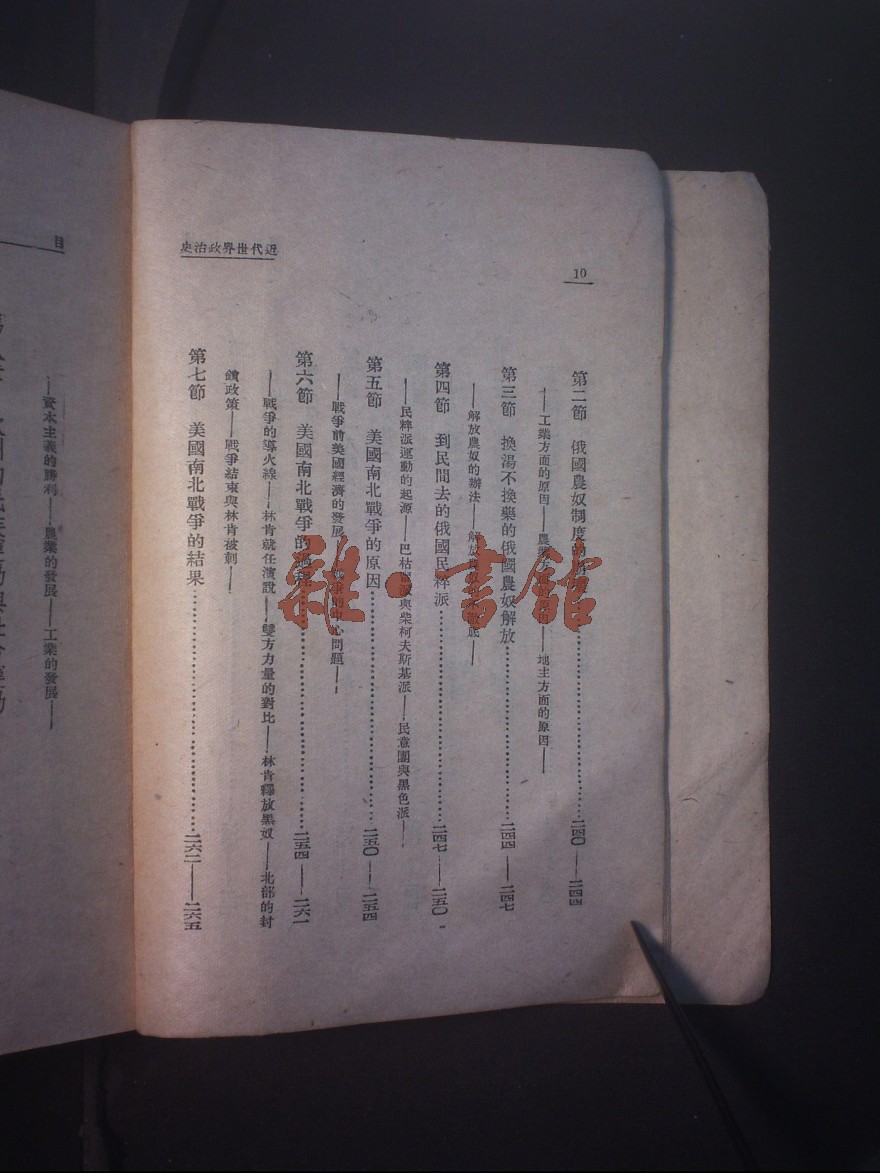 近代世界政治史
10
第二節 俄國農奴制度的
二四〇——二四四
——工業方面的原因——農業方面的原因——地主方面的原因——
第三節 換湯不換藥的俄國農奴解放
二四四——二四七
——解放農奴的辦法——解放農奴的不徹底——
第四節 到民間去的俄國民粹派…………二四七——二五〇
——民粹派運動的起源——巴枯甯派與柴柯夫斯基派——民意團與黑色派——
第五節 美國南北戰爭的原因…………二五〇——二五四
——戰爭前美國經濟的發展——戰爭的中心問題——
第六節 美國南北戰爭的過程…………二五四——二六一
——戰爭的導火線——林肯就任演說——雙方力量的對比——林肯釋放黑奴——北部的封
鎖政策——戰爭結束與林肯被刺——
第七節 美國南北戰爭的結果…………二六二——二六五
目
——資本主義的勝利——農業的發展——工業的發展——
雜·書館